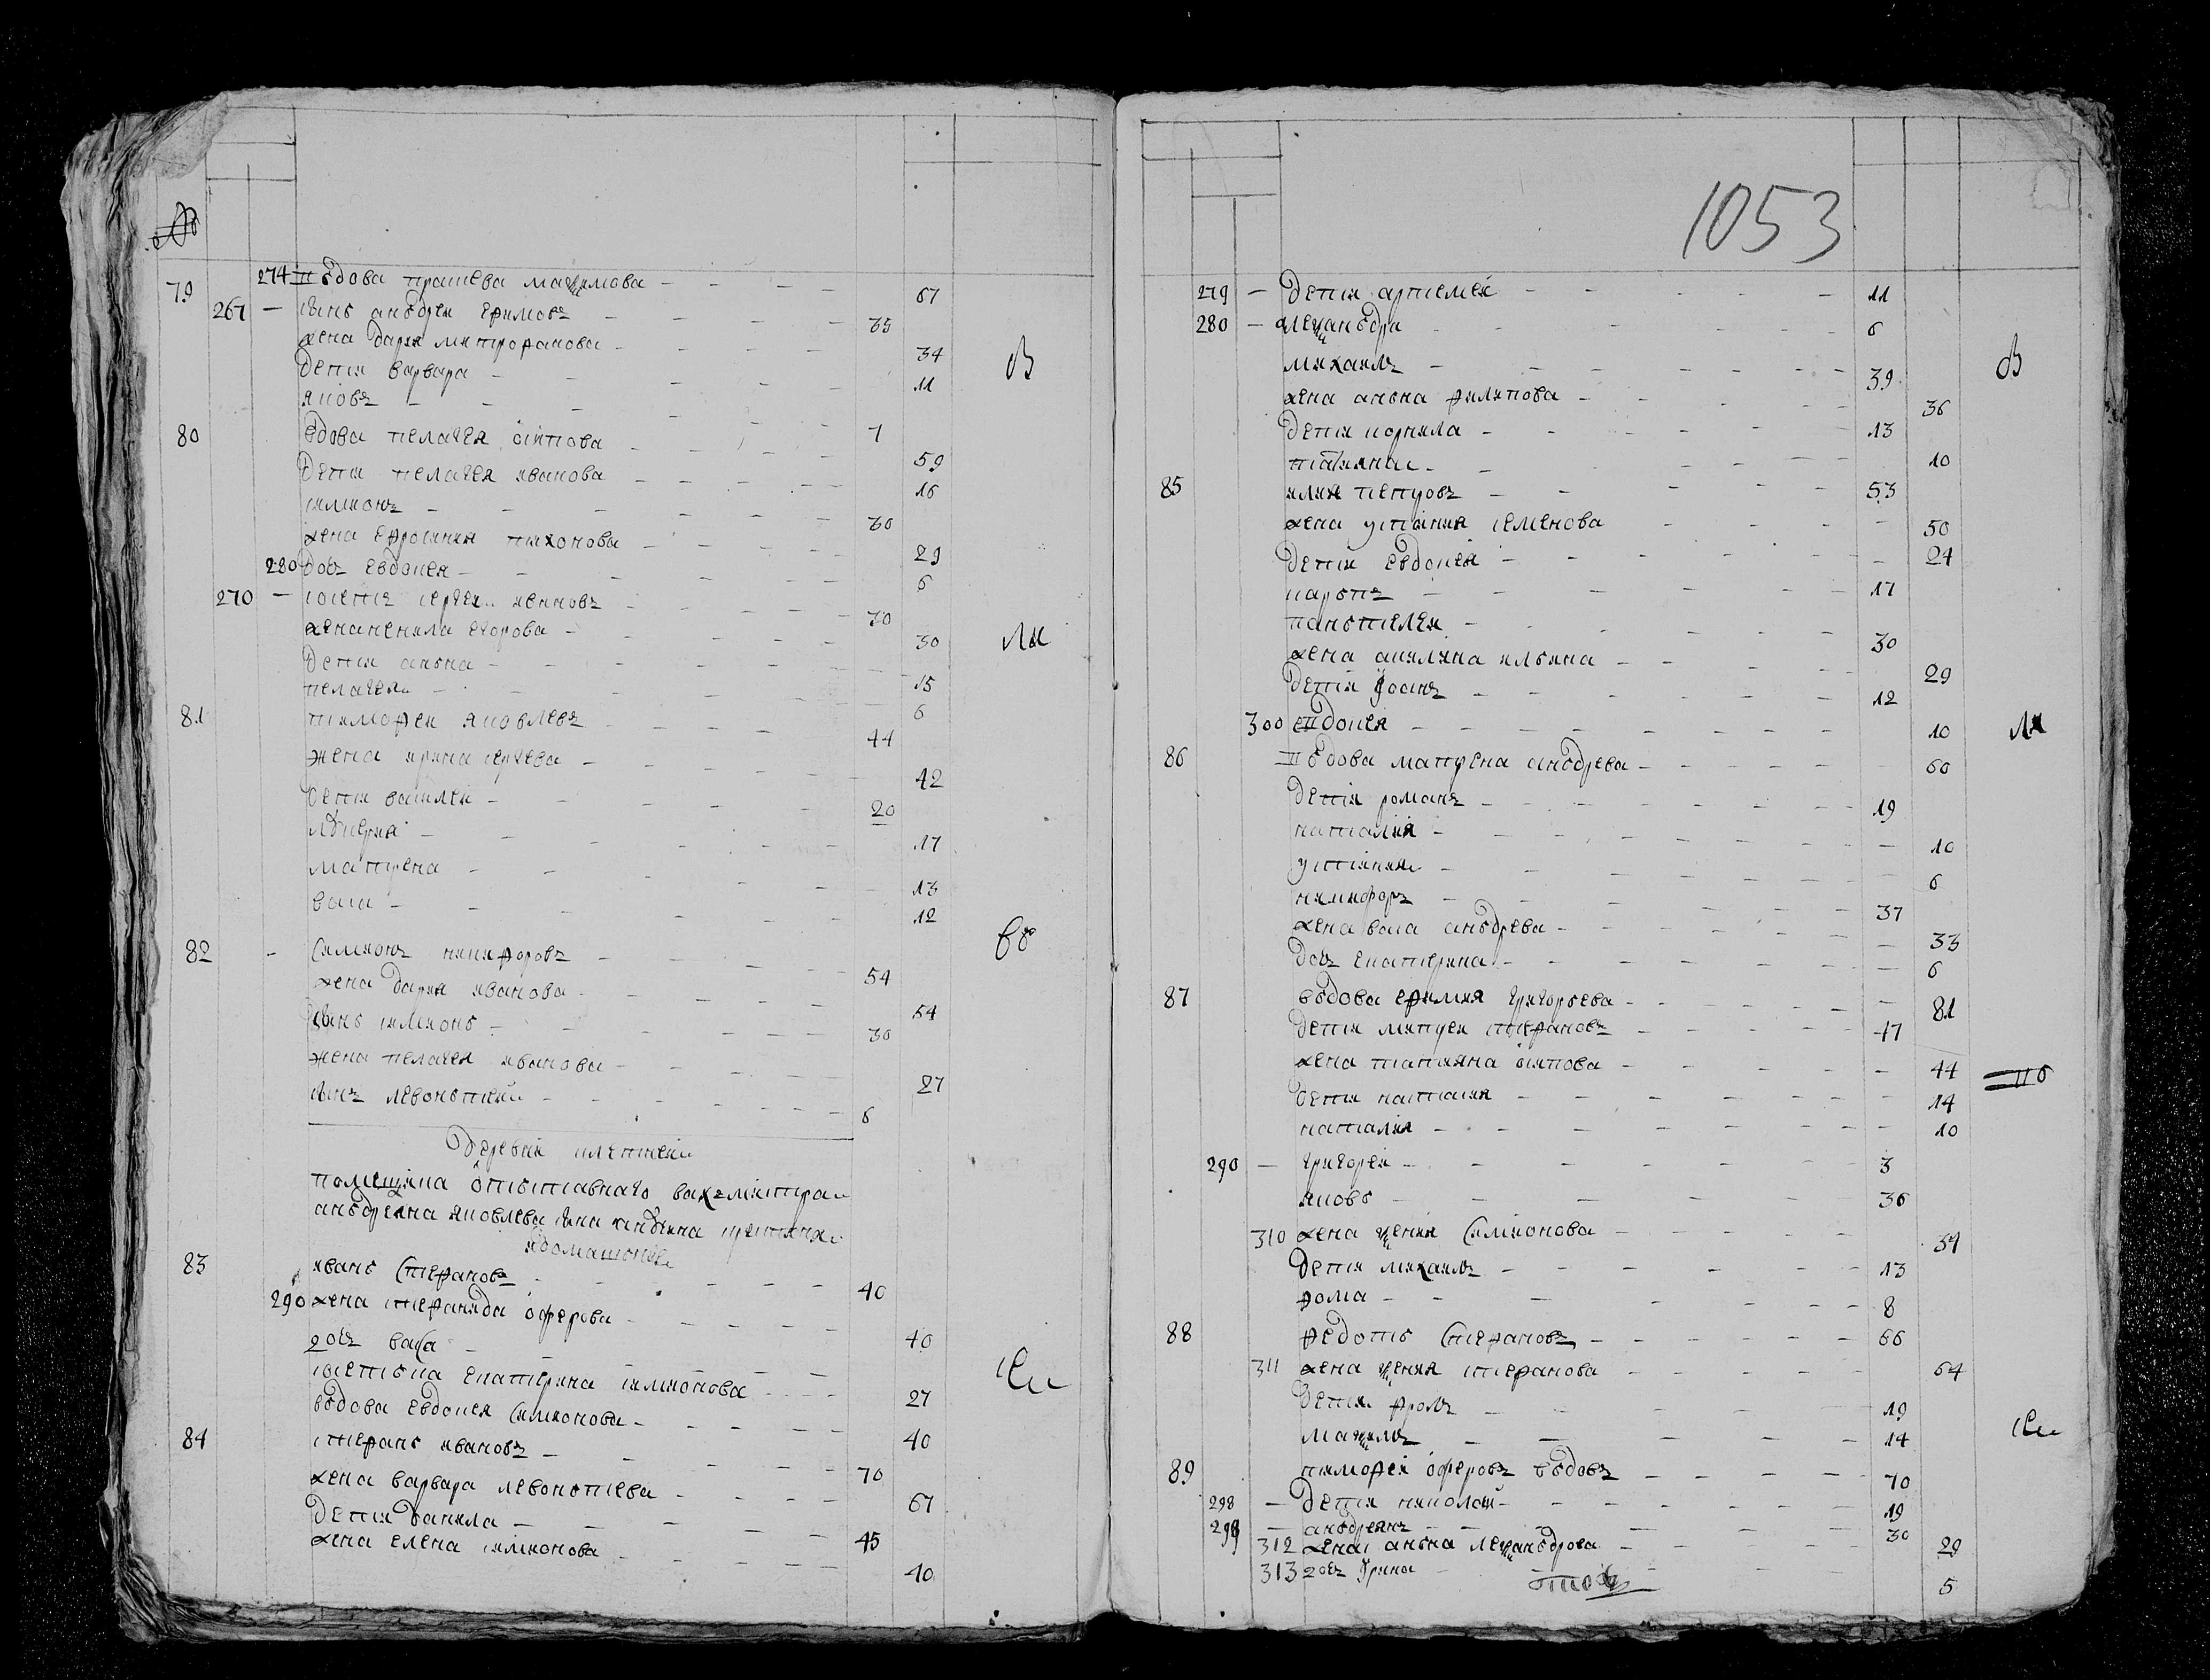 №
79 274 вдова прасковa маѯимова — 67
267 — сынъ анъдреи ефимовъ — 35
жена даря митрофанова — 34
дети варвара — 11
яковъ — 7
80 вдова пелагея осипова — 59
дети пелагея иванова — 16
симионъ — 30
жена ефросиния тихонова — 29
280 дочь евдокея — 6
270 — сергеи — 30
жена ненила егорова — 30
дети аньна — 15
пелагея — 6
81 тимофеи яковлевъ — 44
жена ирина сергеева — 42
дети василеи — 20
лукеря — 17
матрена — 13
васа — 12
82 — симионъ никифоровъ — 54
жена даря иванова — 54
сынъ симионъ — 30
жена пелагея иванова — 27
сынъ левонътеи — 6
деревни
помещика отъставнаго вахъмистра
анъдреяна яковлева сына крестяня
идомашъние
83 иванъ стефановъ — 40
290 жена стефанида оферова — 40
дочь васа
екатерина симионова — 27
въдова евдокея симионова — 40
84 стефанъ ивановъ — 70
жена варвара левонътева — 67
дети данила — 45
жена елена симионова — 40
В
ли
св
си
1053
279 — дети артемеи — 11
280 — алеѯанъдра — 6
михаилъ — 39
жена аньна филипова — 36
дети корнила — 13
татияна — 10
85 илия петровъ — 53
жена устиния семенова — 50
дети евдокея — 24
карыпъ — 17
панътелеи — 30
жена акилина ильина — 29
дети иоанъ — 12
300 евдокея — 10
86 въдова матрена анъдрева — 60
дети романъ — 19
наталия — 10
устиния — 6
никифоръ — 37
жена васа анъдрева — 33
дочь екатерина — 6
87 въдова ефимия григорьева — 81
дети митреи стефановъ — 47
жена татияна осипова — 44
дети настасия — 14
наталия — 10
290 — григореи — 3
яковъ — 36
310 жена ѯения симионова — 34
дети михаилъ — 13
фома — 8
88 федотъ стефановъ — 66
311 жена ѯения стефанова — 64
дети фролъ — 19
маѯимъ — 14
89 тимофеи оферовъ въдовъ — 70
298 — дети николаи — 19
299 — анъдреянъ — 30
312 жена аньна алеѯанъдрова — 29
313 дочь ирина — 5
В
ли
си